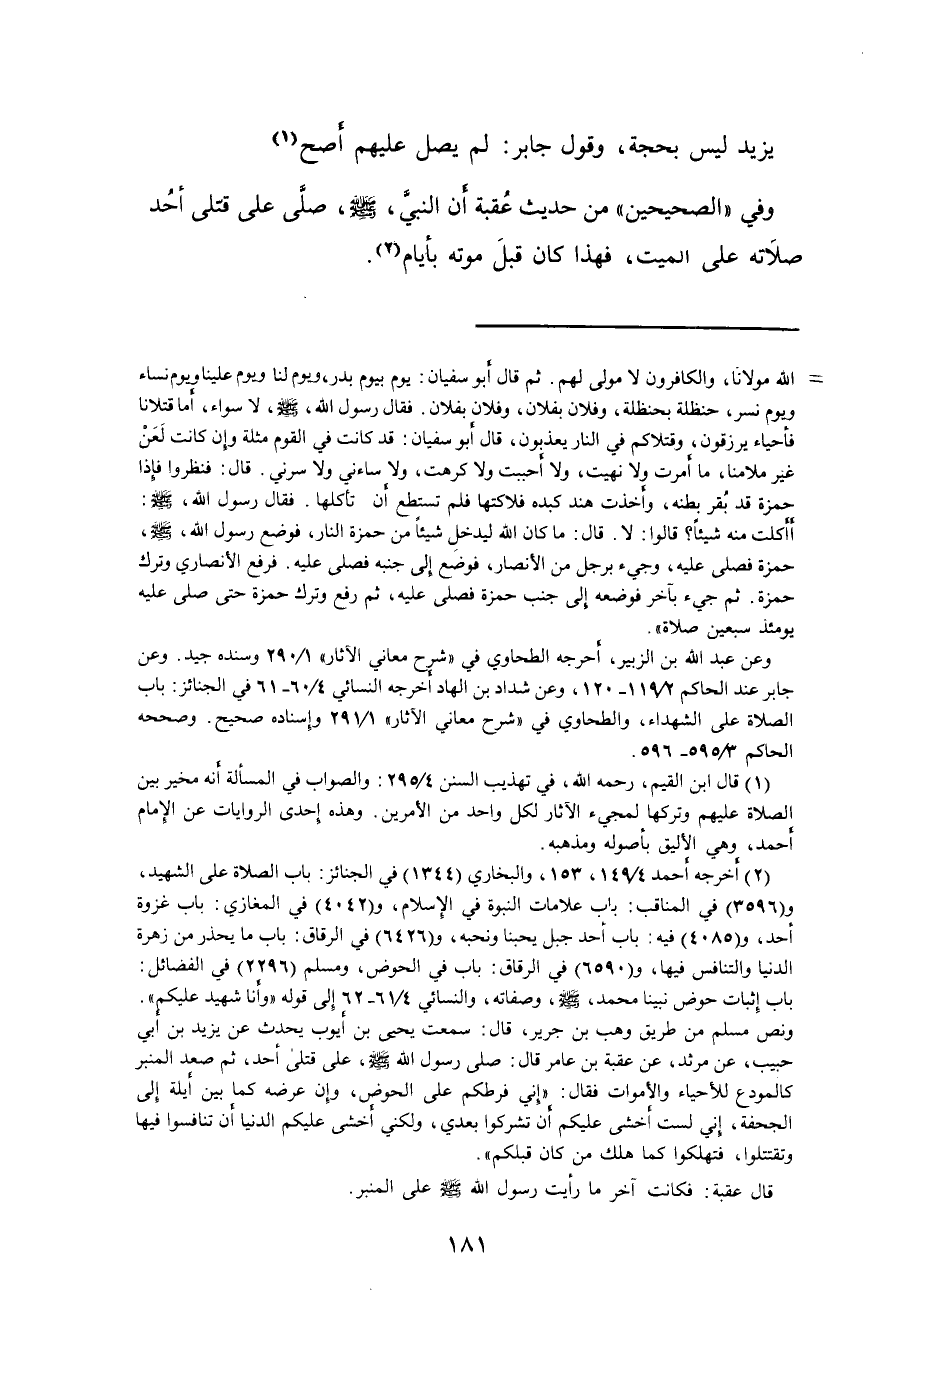 يزيد ليس بحجة، وقول جابر: لم يصل عليهم أَصح(١)
وفي «الصحيحين» من حديث عُقبة أَن النبيَّ، ﷺ، صلَّى على قتلى أُحُد
صلَاته على الميت، فهذا كان قبلَ موته بأيام(٢).
= الله مولانا، والكافرون لا مولى لهم. ثم قال أبو سفيان: يوم بيوم بدر، ويوم لنا ويوم علينا ويوم نساء
ويوم نسر، حنظلة بحنظلة، وفلان بفلان، وفلان بفلان. فقال رسول الله، ﷺ، لا سواء، أما قتلانا
فأحياء يرزقون، وقتلاكم في النار يعذبون، قال أبو سفيان: قد كانت في القوم مثلة وإن كانت لَعَنْ
غير ملامنا، ما أمرت ولا نهيت، ولا أحببت ولا كرهت، ولا ساءني ولا سرني. قال: فنظروا فإذا
حمزة قد بُقر بطنه، وأخذت هند كبده فلاكتها فلم تستطع أن تأكلها. فقال رسول الله، ﷺ:
أأكلت منه شيئاً؟ قالوا: لا. قال: ما كان الله ليدخل شيئاً من حمزة النار، فوضع رسول الله، ﷺ،
حمزة فصلى عليه، وجيء برجل من الأنصار، فوضع إلى جنبه فصلى عليه. فرفع الأنصاري وترك
حمزة. ثم جيء بآخر فوضعه إلى جنب حمزة فصلى عليه، ثم رفع وترك حمزة حتى صلى عليه
يومئذ سبعين صلاة».
وعن عبد الله بن الزبير، أخرجه الطحاوي في «شرح معاني الآثار» ٢٩٠/١ وسنده جيد. وعن
جابر عند الحاكم ١١٩/٢ــ ١٢٠، وعن شداد بن الهاد أخرجه النسائي ٦٠/٤ــ ٦١ في الجنائز: باب
الصلاة على الشهداء، والطحاوي في «شرح معاني الآثار» ٢٩١/١ وإسناده صحيح. وصححه
الحاكم ٥٩٥/٣ــ ٥٩٦.
(١) قال ابن القيم، رحمه الله، في تهذيب السنن ٢٩٥/٤: والصواب في المسألة أنه مخير بين
الصلاة عليهم وتركها لمجيء الآثار لكل واحد من الأمرين. وهذه إحدى الروايات عن الإمام
أحمد، وهي الأليق بأصوله ومذهبه.
(٢) أخرجه أحمد ١٤٩/٤، ١٥٣، والبخاري (١٣٤٤) في الجنائز: باب الصلاة على الشهيد،
و(٣٥٩٦) في المناقب: باب علامات النبوة في الإسلام، و(٤٠٤٢) في المغازي: باب غزوة
أحد، و(٤٠٨٥) فيه: باب أحد جبل يحبنا ونحبه، و(٦٤٢٦) في الرقاق: باب ما يحذر من زهرة
الدنيا والتنافس فيها، و(٦٥٩٠) في الرقاق: باب في الحوض، ومسلم (٢٢٩٦) في الفضائل:
باب إثبات حوض نبينا محمد، ﷺ، وصفاته، والنسائي ٦١/٤ــ ٦٢ إلى قوله «وأنا شهيد عليكم».
ونص مسلم من طريق وهب بن جرير، قال: سمعت يحيى بن أيوب يحدث عن يزيد بن أبي
حبيب، عن مرثد، عن عقبة بن عامر قال: صلى رسول الله ﷺ، على قتلىٰ أحد، ثم صعد المنبر
كالمودع للأحياء والأموات فقال: «إني فرطكم على الحوض، وإن عرضه كما بين أيلة إلى
الجحفة، إني لست أخشى عليكم أن تشركوا بعدي، ولكني أخشى عليكم الدنيا أن تنافسوا فيها
وتقتتلوا، فتهلكوا كما هلك من كان قبلكم».
قال عقبة: فكانت آخر ما رأيت رسول الله ﷺ على المنبر.
١٨١